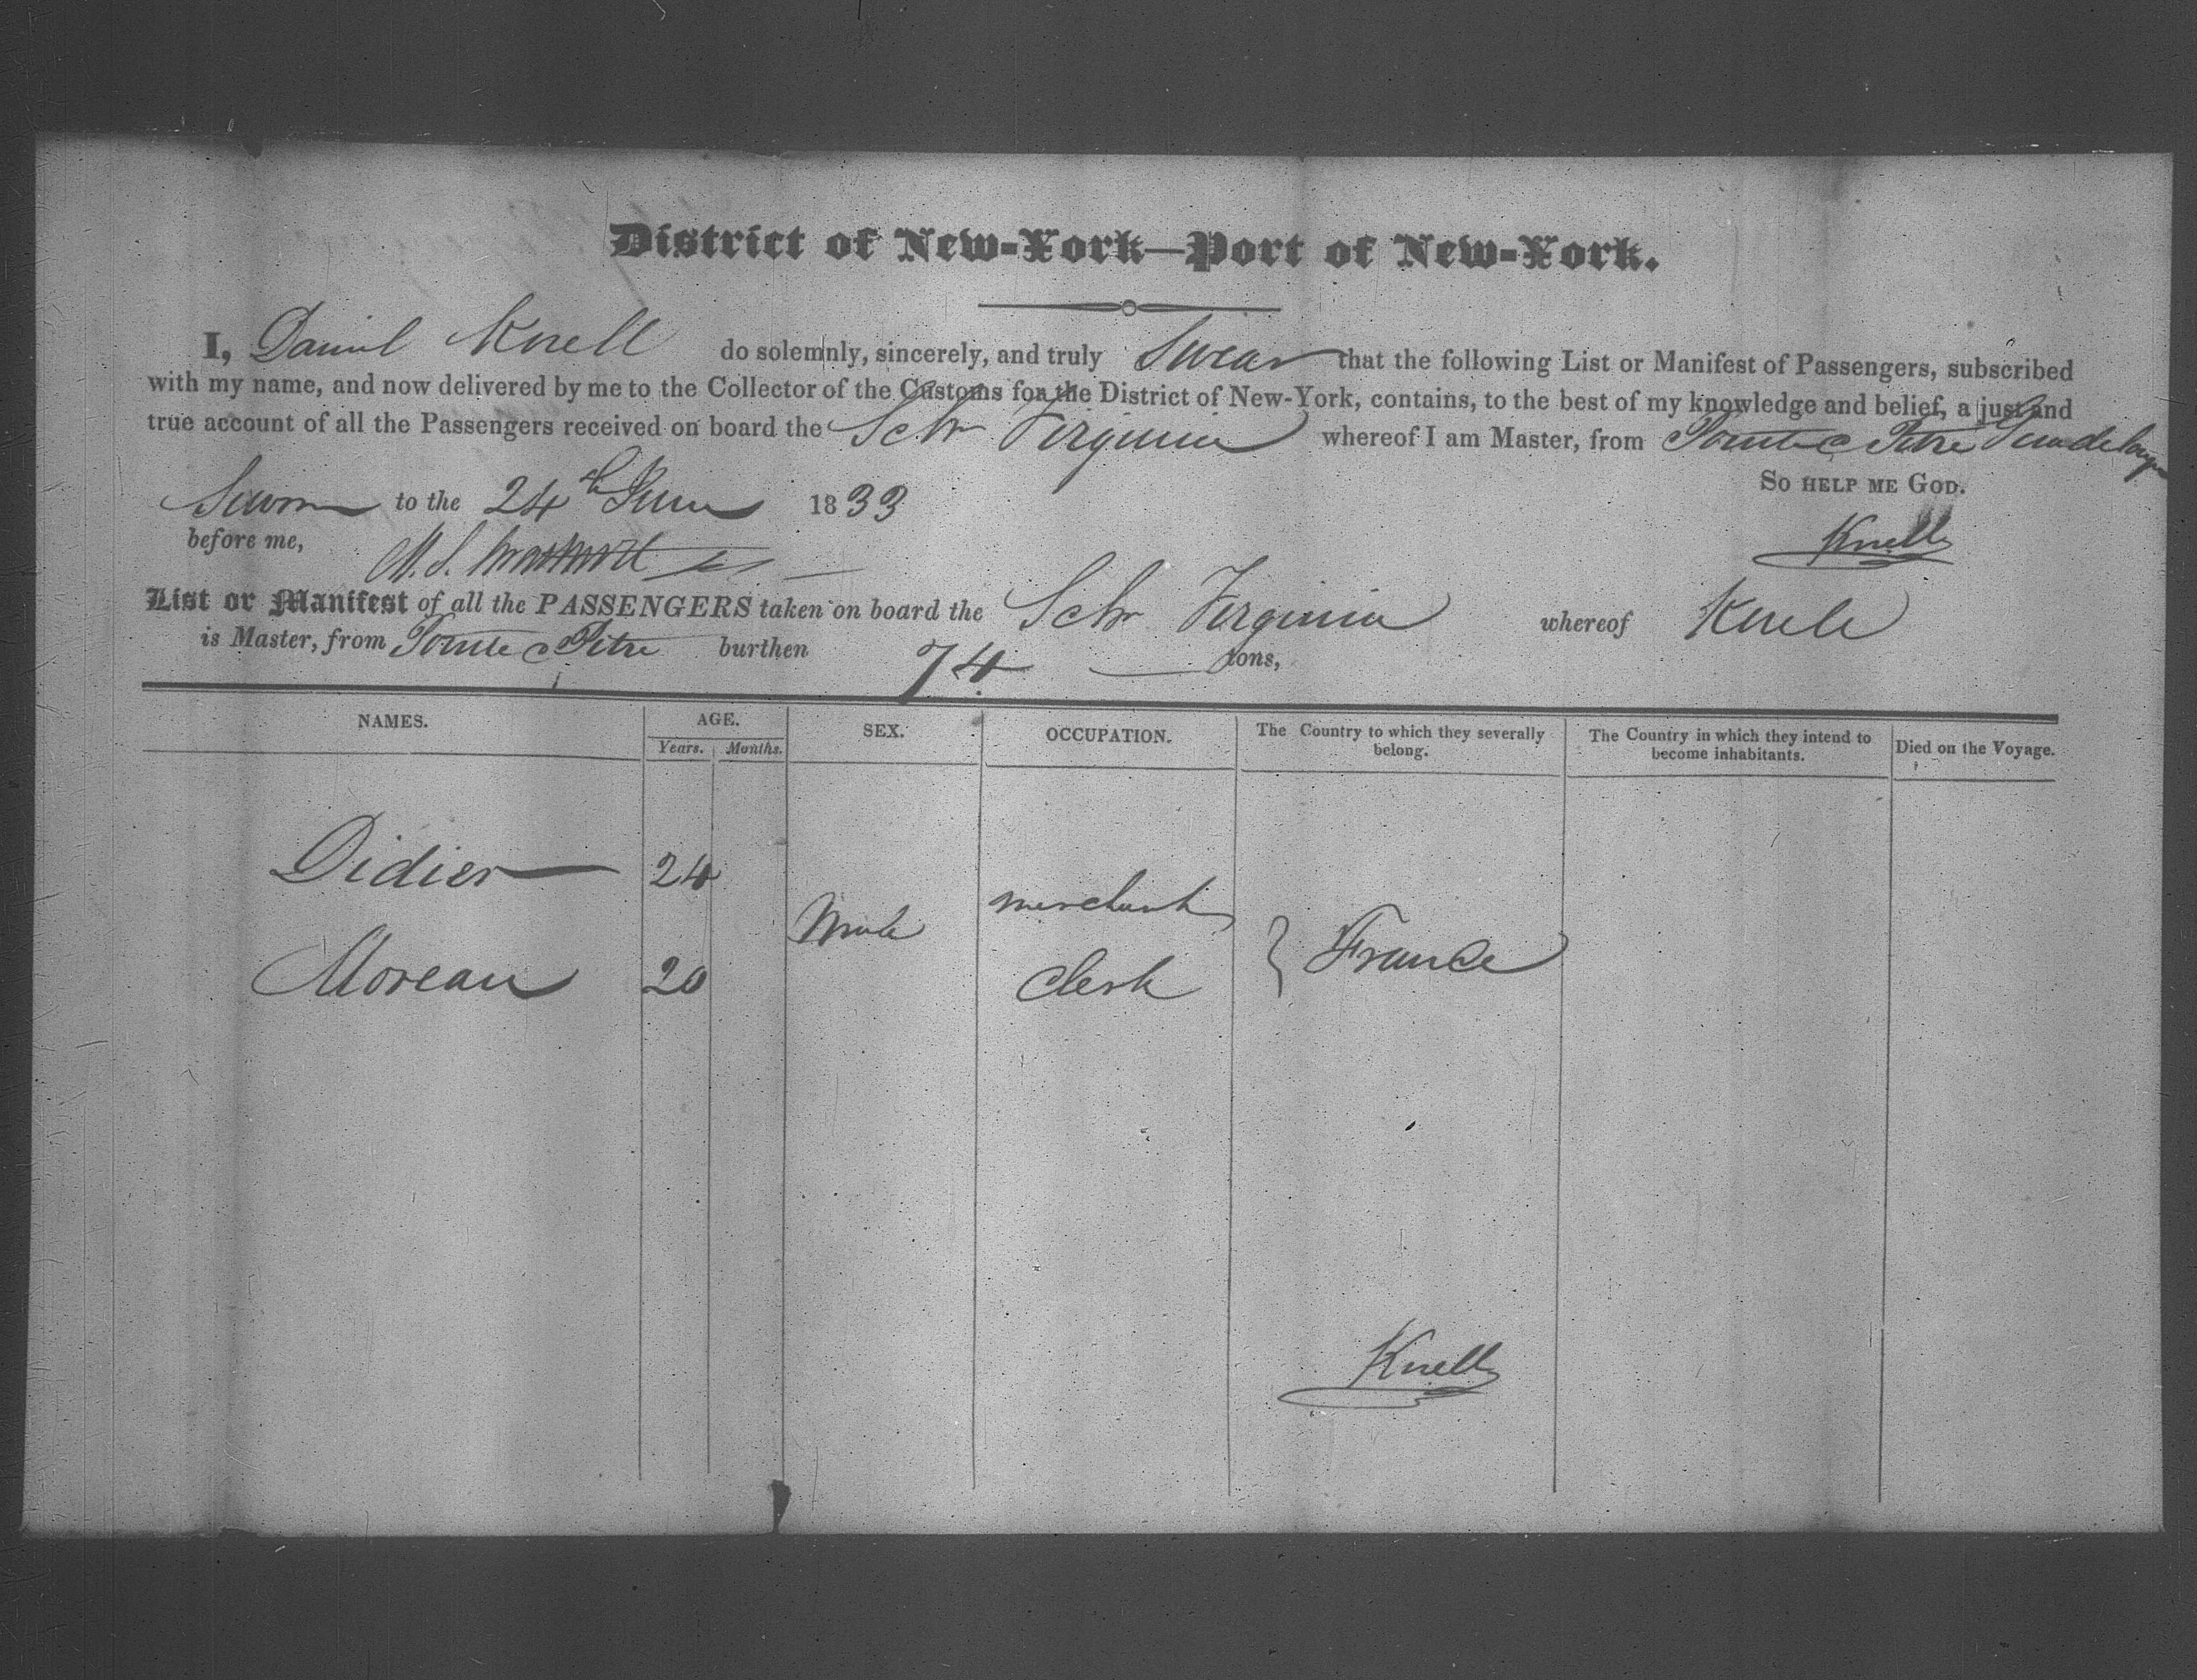 District of New-York—Port of New-York.
I, Daniel Knell do solemnly, sincerely, and truly Swear that the following List or Manifest of Passengers, subscribed
with my name, and now delivered by me to the Collector of the Customs for the District of New-York, contains, to the best of my knowledge and belief, a just and
true account of all the Passengers received on board the Schr Virginia whereof I am Master, from Pointe a Pitre Guadeloupe
So help me God.
Sworn to the 24th June 1833
Knell
before me, M. S.
List or Manifest of all the PASSENGERS taken on board the Schr Virginia whereof Knell
is Master, from Pointe a Pitre burthen 74 tons,
NAMES. AGE. SEX. OCCUPATION. The Country to which they severally belong. The Country in which they intend to become inhabitants. Died on the Voyage.
Years. Months.
Didier 24 merchant
Male } France
Moreau 20 Clerk
Knell